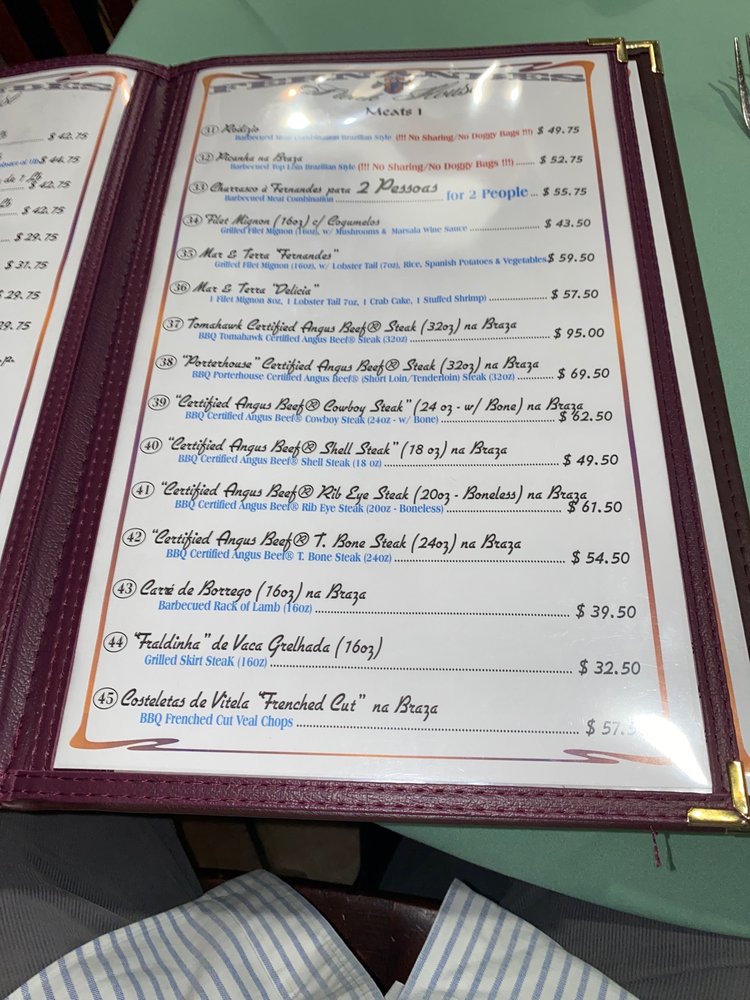 $ 42.75
$ 44.75
de 1 Lb
$ 42.75
$ 42.75
$ 29.75
$ 31.75
$ 29.75
29.75
FERNANDES
Steak House
Meats 1
31 Rodizio
Barbecued Meat Combination Brazilian Style (!!! No Sharing/No Doggy Bags !!!) $ 49.75
32 Picanha na Braza
Barbecued Top Loin Brazilian Style (!!! No Sharing/No Doggy Bags !!!) $ 52.75
33 Churrasco á Fernandes para 2 Pessoas
Barbecued Meat Combination for 2 People $ 55.75
34 Filet Mignon (16oz) c/ Cogumelos
Grilled Filet Mignon (16oz), w/ Mushrooms & Marsala Wine Sauce $ 43.50
35 Mar & Terra "Fernandes"
Grilled Filet Mignon (16oz), w/ Lobster Tail (7oz), Rice, Spanish Potatoes & Vegetables $ 59.50
36 Mar & Terra "Delicia"
1 Filet Mignon 8oz, 1 Lobster Tail 7oz, 1 Crab Cake, 1 Stuffed Shrimp) $ 57.50
37 Tomahawk Certified Angus Beef® Steak (32oz) na Braza
BBQ Tomahawk Certified Angus Beef® Steak (32oz) $ 95.00
38 "Porterhouse" Certified Angus Beef® Steak (32oz) na Braza
BBQ Porterhouse Certified Angus Beef® (Short Loin/Tenderloin) Steak (32oz) $ 69.50
39 "Certified Angus Beef® Cowboy Steak" (24 oz - w/ Bone) na Braza
BBQ Certified Angus Beef® Cowboy Steak (24oz - w/ Bone) $ 62.50
40 "Certified Angus Beef® Shell Steak" (18 oz) na Braza
BBQ Certified Angus Beef® Shell Steak (18 oz) $ 49.50
41 "Certified Angus Beef® Rib Eye Steak (20oz - Boneless) na Braza
BBQ Certified Angus Beef® Rib Eye Steak (20oz - Boneless) $ 61.50
42 "Certified Angus Beef® T. Bone Steak (24oz) na Braza
BBQ Certified Angus Beef® T. Bone Steak (24oz) $ 54.50
43 Carré de Borrego (16oz) na Braza
Barbecued Rack of Lamb (16oz) $ 39.50
44 "Fraldinha" de Vaca Grelhada (16oz)
Grilled Skirt SteaK (16oz) $ 32.50
45 Costeletas de Vitela "Frenched Cut" na Braza
BBQ Frenched Cut Veal Chops $ 57.5